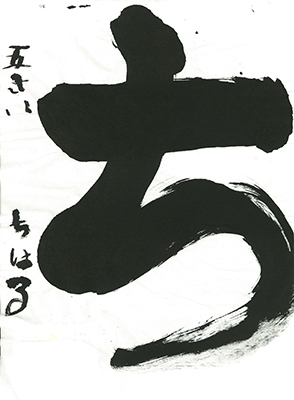 ち
五さい
ちはる